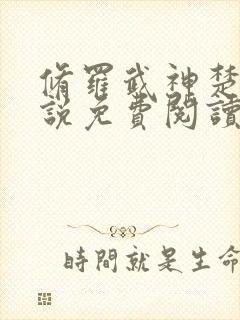 脩羅武神楚
說免費閱讀
時間就是生命